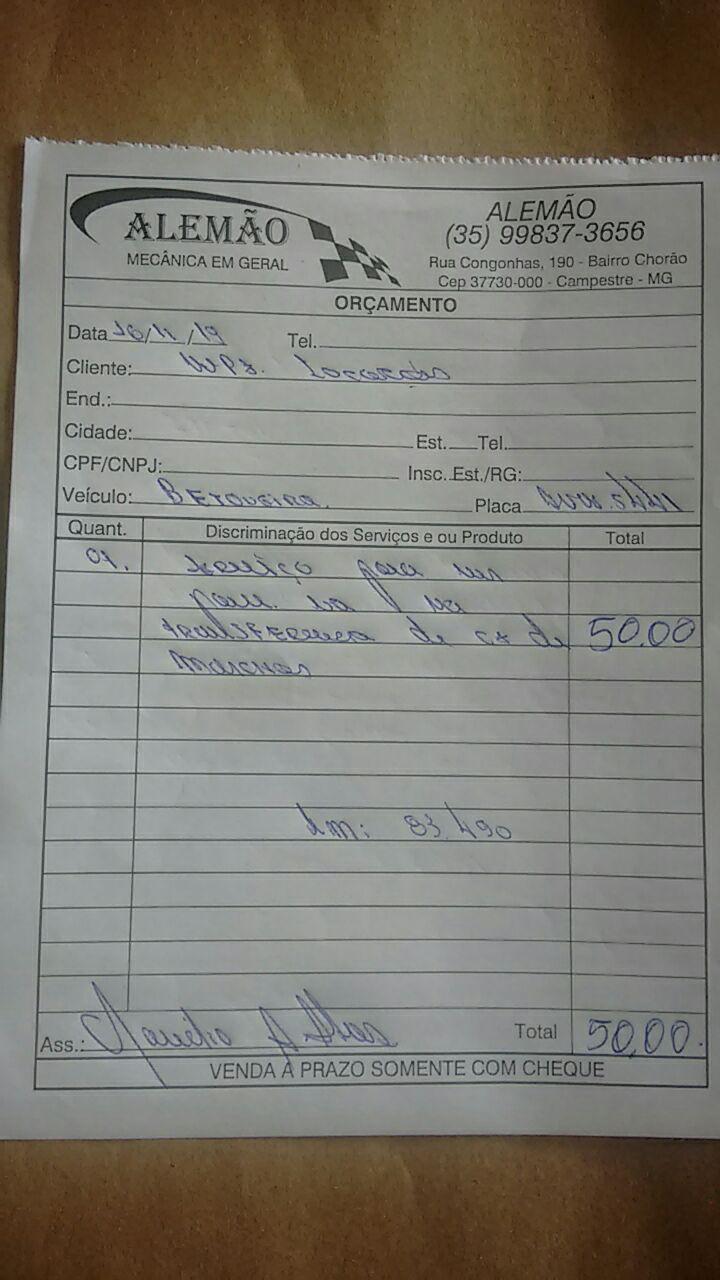 ALEMÃO
MECÂNICA EM GERAL
ALEMÃO
(35) 99837-3656
Rua Congonhas, 190 - Bairro Chorão
Cep 37730-000 - Campestre - MG
ORÇAMENTO
Data 16/11/19 Tel.
Cliente: Locacões
End.:
Cidade: Est. Tel.
CPF/CNPJ: Insc. Est./RG:
Veículo: BETONEIRA. Placa
Quant. Discriminação dos Serviços e ou Produto Total
01. serviço para
na
de cx de 50,00
marchas
km: 83.490
Ass.: Total 50,00.
VENDA À PRAZO SOMENTE COM CHEQUE